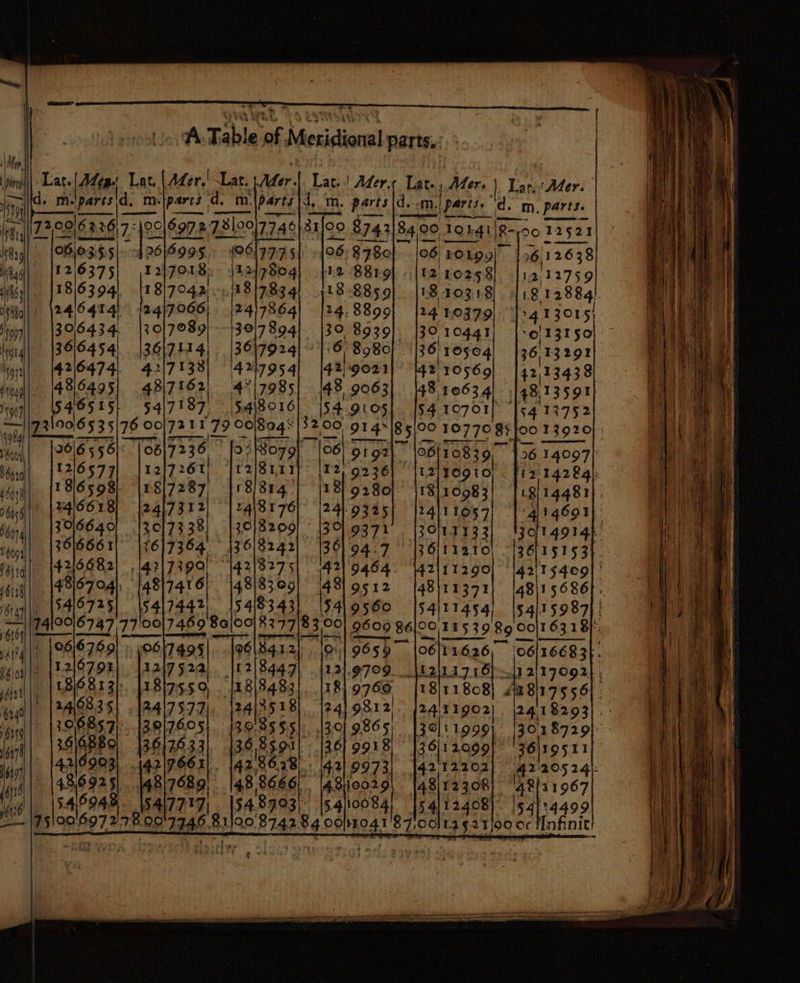 A Table of Meridional parts.
Lat. Mer. Lat. Mer. Lat. Mer. Lat. Mer. Lat. Mer. Lat. Mer.
d. m. parts d. m. parts d. m. parts d. m. parts d. m. parts d. m. parts.
72 00 6336 7 00 6972 78 00 7746 81 00 8743 84 00 10141 87 00 12521
06 6355 06 6995 06 7775 06 8780 06 10199 06 12638
12 6375 12 7018 12 7804 12 8819 12 10258 12 12759
18 6394 18 7042 18 7834 18 8859 18 10318 18 12884
24 6414 24 7066 24 7864 24 8899 24 10379 24 13015
30 6434 30 7089 30 7894 30 8939 30 10441 30 13150
36 6454 36 7114 36 7924 36 8980 36 10504 36 13291
42 6474 42 7138 42 7954 42 9021 42 10569 42 13438
48 6495 48 7162 48 7985 48 9063 48 10634 48 13591
54 6515 54 7187 54 8016 54 9105 54 10701 54 13752
73 00 6535 76 00 7211 79 00 8048 82 00 9148 85 00 10770 88 00 13920
06 6556 06 7236 06 8079 06 9192 06 10839 06 14097
12 6577 12 7261 12 8111 12 9236 12 10910 12 14284
18 6598 18 7287 18 8144 18 9280 18 10983 18 14481
24 6618 24 7312 24 8176 24 9325 24 11057 24 14691
30 6640 30 7338 30 8209 30 9371 30 11133 30 14914
36 6661 36 7364 36 8242 36 9417 36 11210 36 15153
42 6682 42 7390 42 8275 42 9464 42 11290 42 15409
48 6704 48 7416 48 8309 48 9512 48 11371 48 15686
54 6725 54 7442 54 8343 54 9560 54 11454 54 15987
74 00 6747 77 00 7469 80 00 8377 83 00 9609 86 00 11539 89 00 16318
06 6769 06 7495 06 8412 06 9659 06 11626 06 16683
12 6791 12 7522 12 8447 12 9709 12 11716 12 17092
18 6813 18 7550 18 8483 18 9760 18 11808 18 17556
24 6835 24 7577 24 8518 24 9812 24 11902 24 18293
30 6857 30 7605 30 8555 30 9865 30 11999 30 18729
36 6880 36 7633 36 8591 36 9918 36 12099 36 19511
42 6903 42 7661 42 8638 42 9973 42 12202 42 20524
48 6925 48 7689 48 8666 48 10029 48 12308 48 21967
54 6948 54 7717 54 8703 54 10084 54 12408 54 24499
75 00 6972 78 00 7746 81 00 8742 84 00 11041 87 00 12521 90 00 Infinit